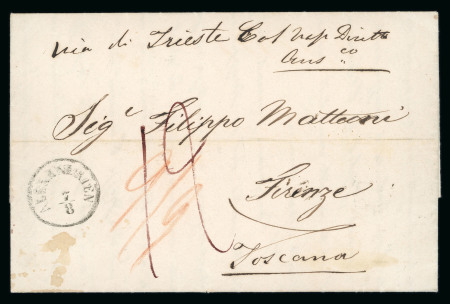 via di Trieste Col Vap Diretto
Aus^co
Sig^r Filippo Matteini
Firenze
Toscana
ALEXANDRIEN
7
8
12
9/9